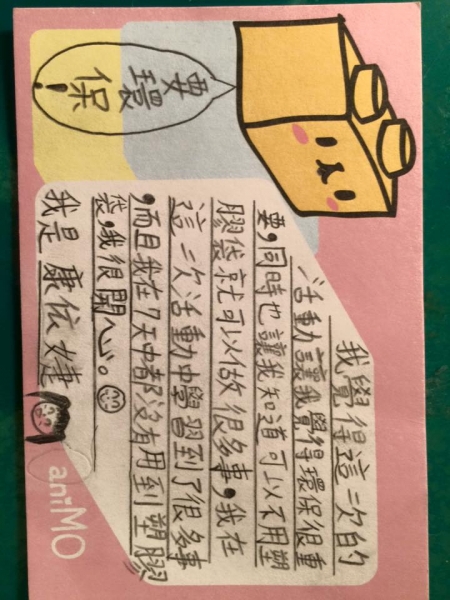 要環
保!
我覺得這一次的
活動讓我覺得環保很重
要,同時也讓我知道可以不用塑
膠袋就可以做很多事,我在
這一次活動中學習到了很多事
,而且我在7天中都沒有用到塑膠
袋,我很開心。
我是康依婕
aniMO